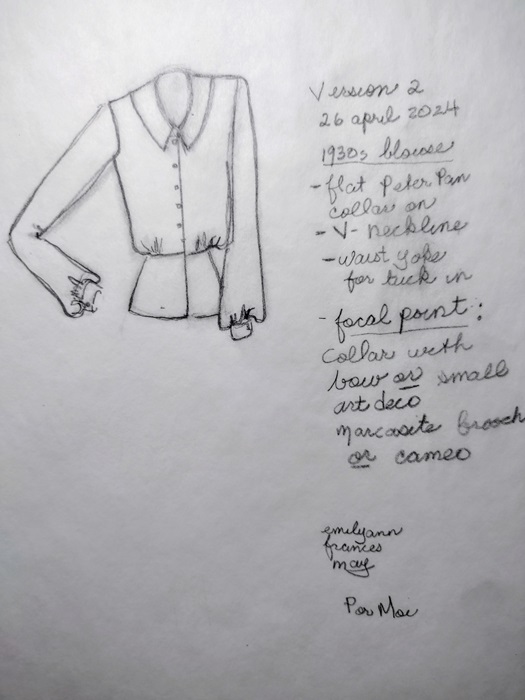 Version 2
26 april 2024
1930s blouse
- flat Peter Pan
collar on
- V- neckline
- waist yoke
for tuck in
- focal point:
Collar with
bow or small
art deco
marcasite brooch
or cameo
emilyann
frances
may
Par Moi